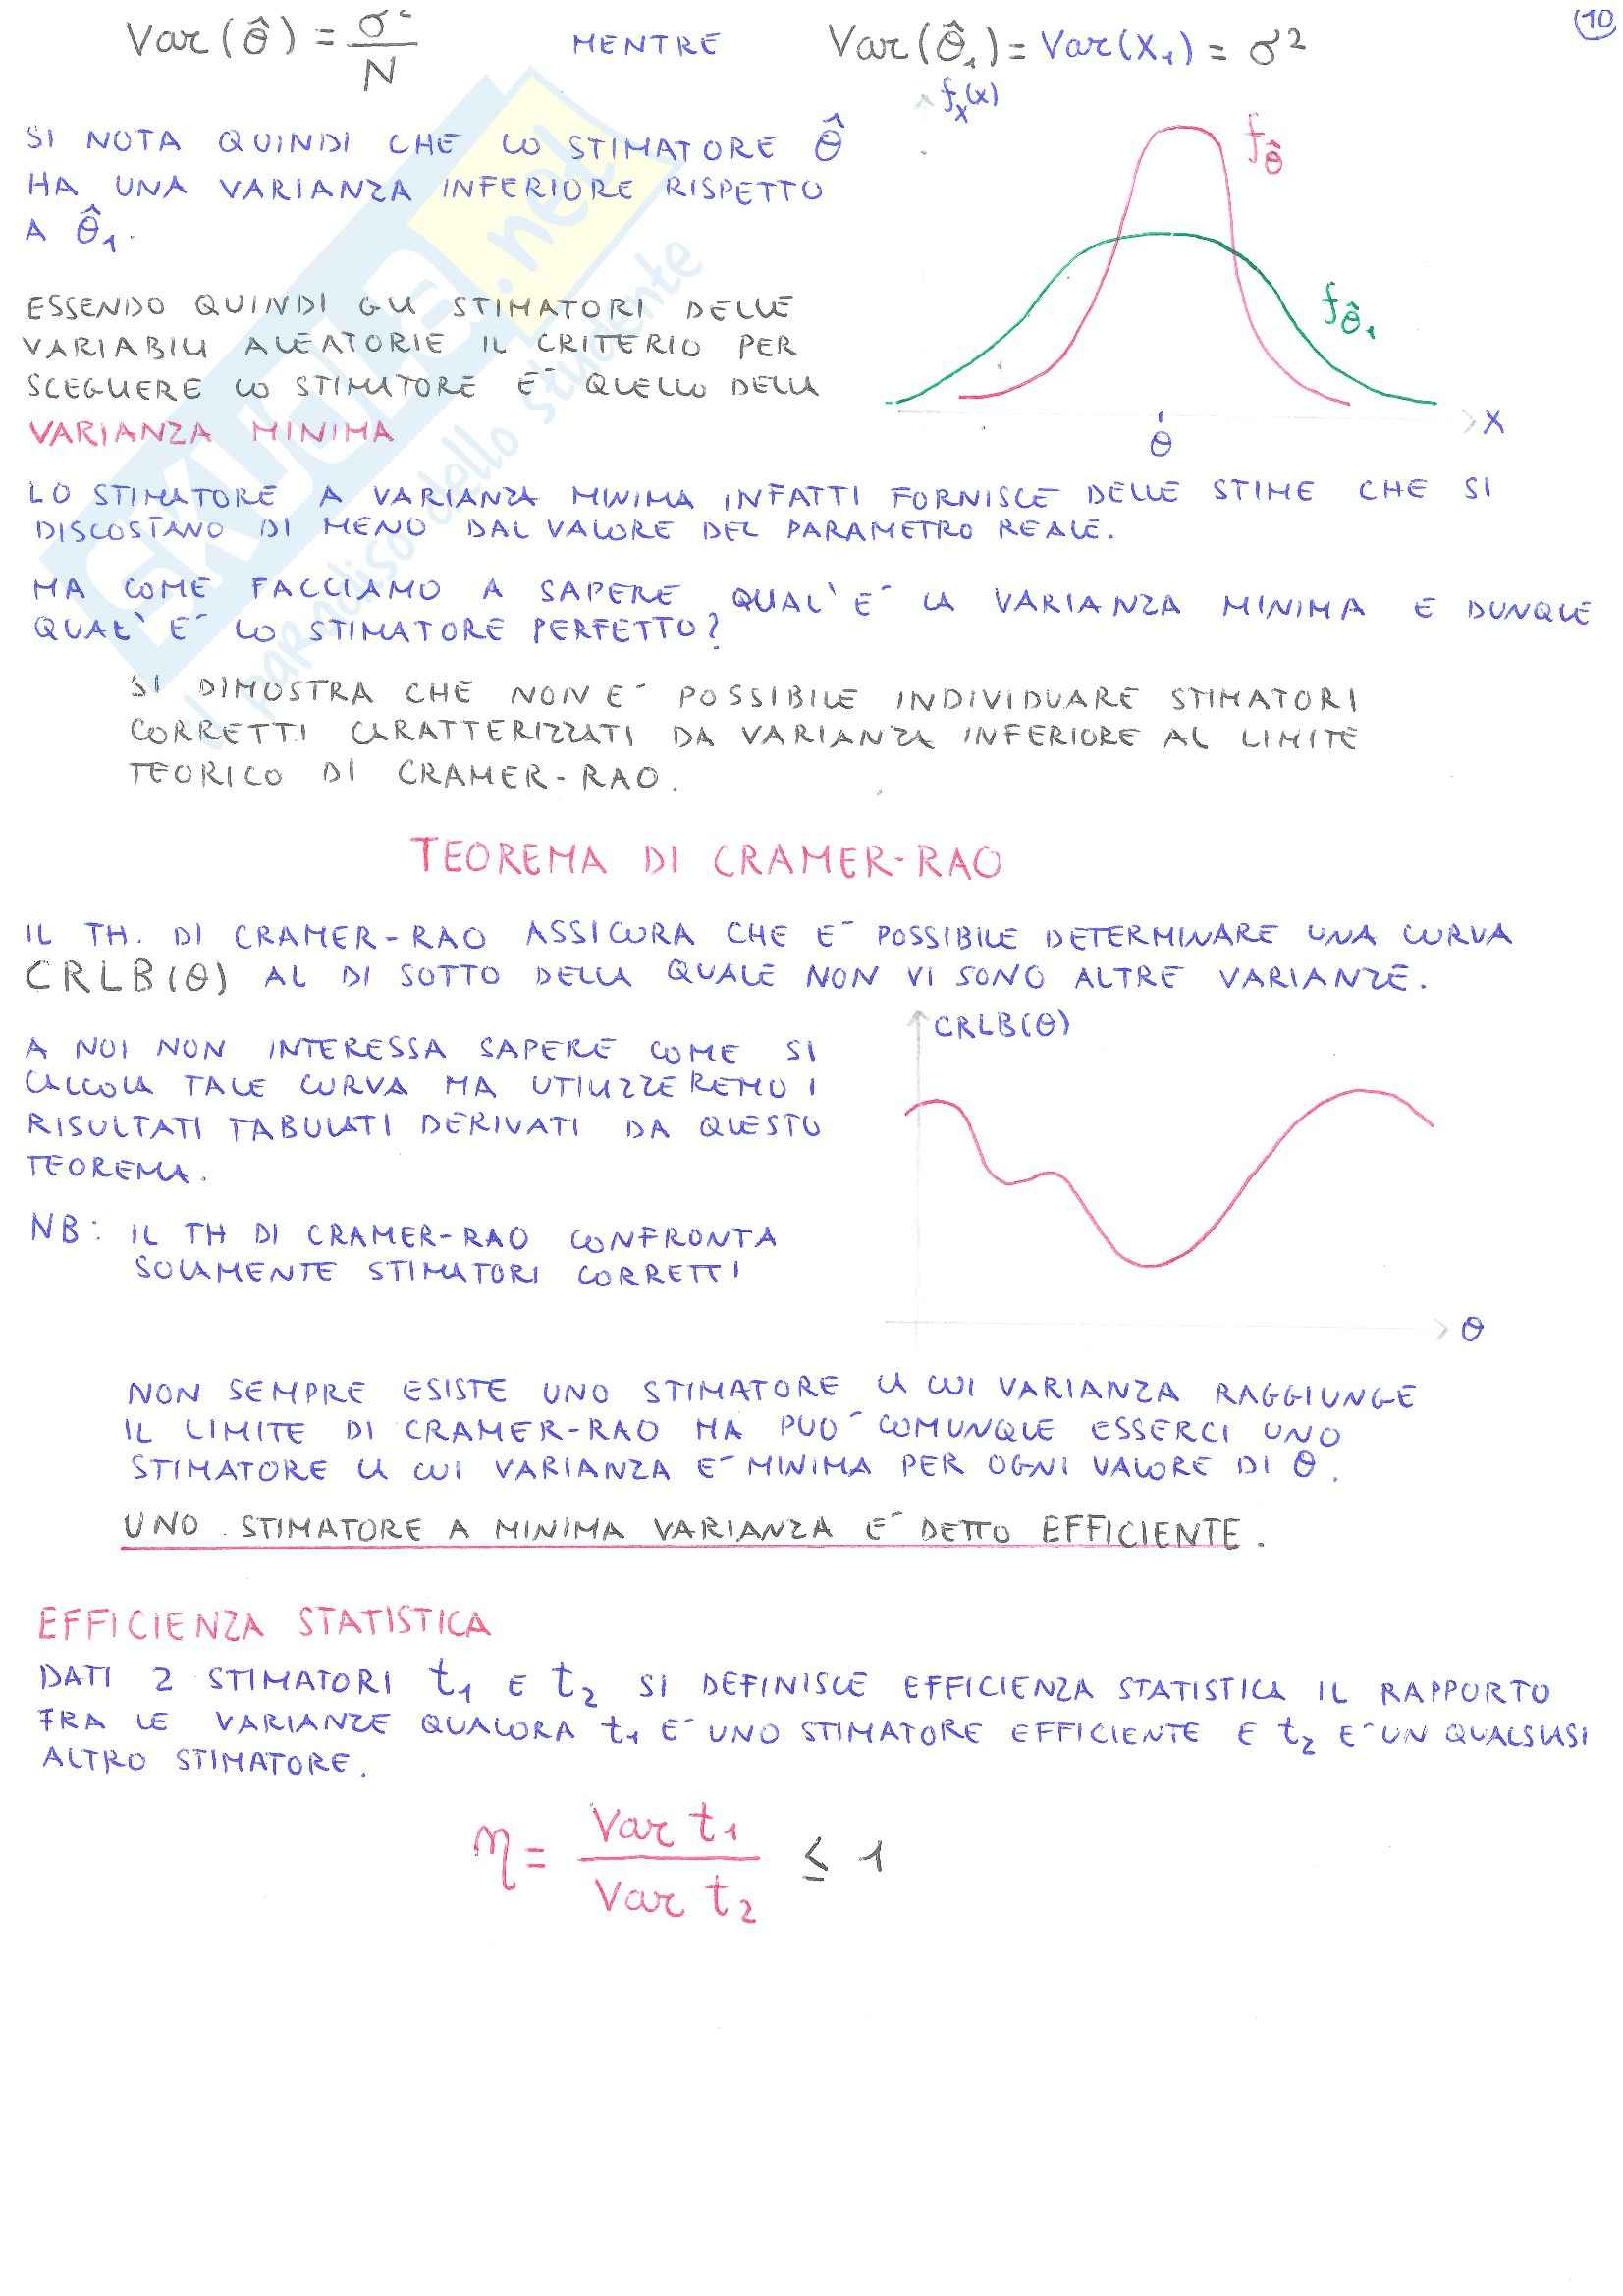 10
Var(θ̂) = σ²/N MENTRE Var(θ̂₁) = Var(X₁) = σ²
f_X(x)
SI NOTA QUINDI CHE LO STIMATORE θ̂
HA UNA VARIANZA INFERIORE RISPETTO
A θ̂₁.
f_θ̂
f_θ̂₁
ESSENDO QUINDI GLI STIMATORI DELLE
VARIABILI ALEATORIE IL CRITERIO PER
SCEGLIERE LO STIMATORE E' QUELLO DELLA
VARIANZA MINIMA
θ
X
LO STIMATORE A VARIANZA MINIMA INFATTI FORNISCE DELLE STIME CHE SI
DISCOSTANO DI MENO DAL VALORE DEL PARAMETRO REALE.
MA COME FACCIAMO A SAPERE QUAL' E' LA VARIANZA MINIMA E DUNQUE
QUAL' E' LO STIMATORE PERFETTO?
SI DIMOSTRA CHE NON E' POSSIBILE INDIVIDUARE STIMATORI
CORRETTI CARATTERIZZATI DA VARIANZA INFERIORE AL LIMITE
TEORICO DI CRAMER-RAO.
TEOREMA DI CRAMER-RAO
IL TH. DI CRAMER-RAO ASSICURA CHE E' POSSIBILE DETERMINARE UNA CURVA
CRLB(θ) AL DI SOTTO DELLA QUALE NON VI SONO ALTRE VARIANZE.
CRLB(θ)
A NOI NON INTERESSA SAPERE COME SI
CALCOLA TALE CURVA MA UTILIZZEREMO I
RISULTATI TABULATI DERIVATI DA QUESTO
TEOREMA.
NB: IL TH DI CRAMER-RAO CONFRONTA
SOLAMENTE STIMATORI CORRETTI
θ
NON SEMPRE ESISTE UNO STIMATORE LA CUI VARIANZA RAGGIUNGE
IL LIMITE DI CRAMER-RAO MA PUO' COMUNQUE ESSERCI UNO
STIMATORE LA CUI VARIANZA E' MINIMA PER OGNI VALORE DI θ.
UNO STIMATORE A MINIMA VARIANZA E' DETTO EFFICIENTE.
EFFICIENZA STATISTICA
DATI 2 STIMATORI t₁ E t₂ SI DEFINISCE EFFICIENZA STATISTICA IL RAPPORTO
FRA LE VARIANZE QUALORA t₁ E' UNO STIMATORE EFFICIENTE E t₂ E' UN QUALSIASI
ALTRO STIMATORE.
η = Var t₁ / Var t₂ ≤ 1
SKUOLA.net
il paradiso dello studente